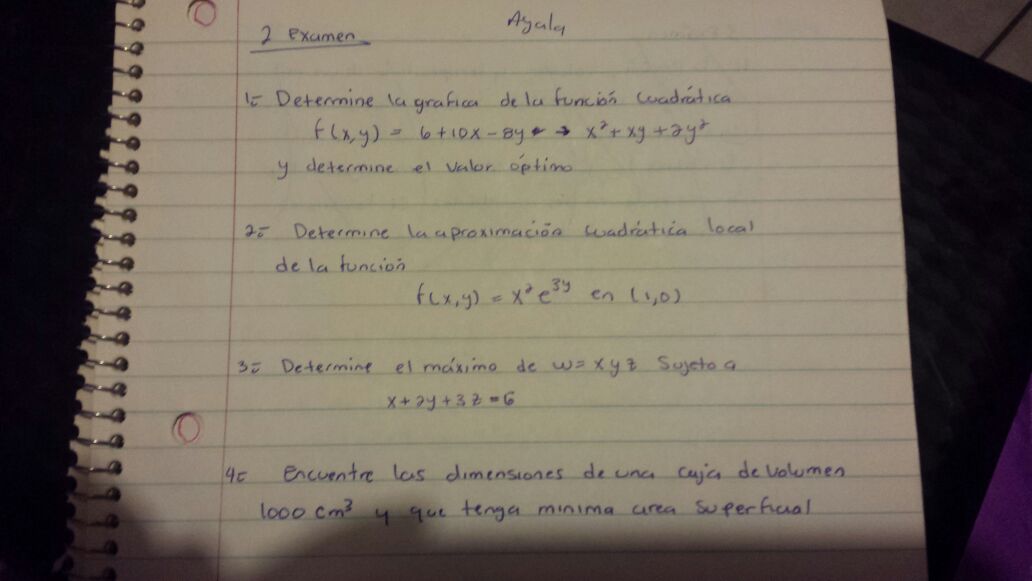 2 examen
Ayala
1.- Determine la grafica de la función cuadrática
f(x,y) = 6+10x-8y → x²+xy+2y²
y determine el valor óptimo
2.- Determine la aproximación cuadrática local
de la función
f(x,y) = x² e^3y en (1,0)
3.- Determine el máximo de w=xyz Sujeto a
x+2y+3z=6
4.- Encuentre las dimensiones de una caja de volumen
1000 cm³ y que tenga minima area superficial